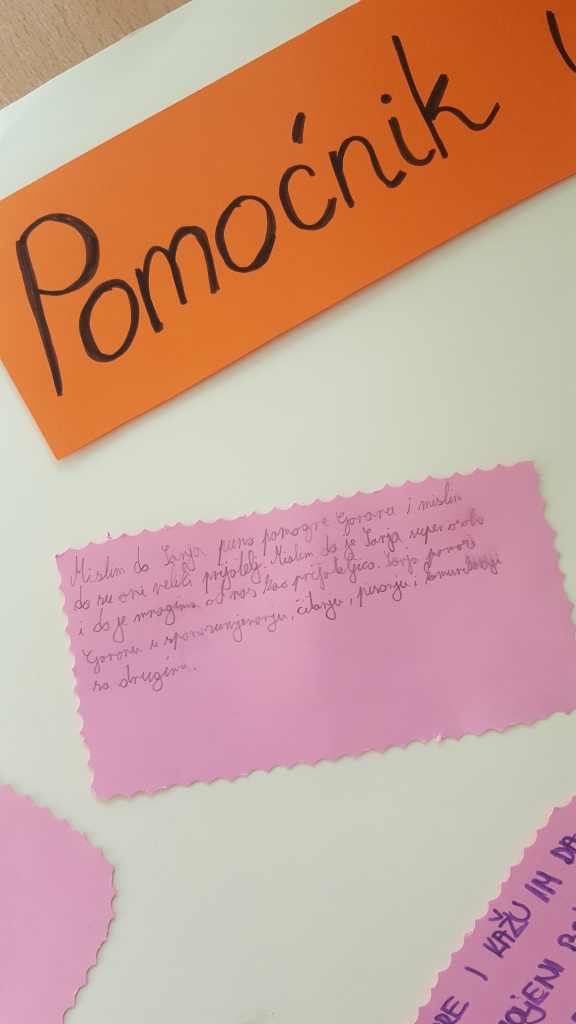 Pomoćnik
Mislim da Sanja puno pomogne Goranu i mislim
da su oni veliki prijatelji. Mislim da je Sanja super osoba
i da je mnogima od nas kao prijateljica. Sanja pomaže
Goranu u sporazumjevanju, čitanju, pisanju i komunikaciji
sa drugima.
RE I KAŽU IM DA
OJENI